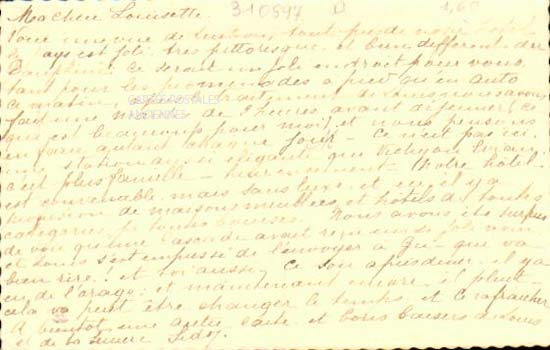 Ma chère Louisette. 310547 D 1,60
Voici une vue de Luchon, tout près de notre hôtel
le pays est joli très pittoresque, et bien différent du
Dauphiné ce serait un joli endroit pour vous
tant pour les promenades à pied ou en auto
ce matin, nous avons
fait une de 2 heures avant déjeuner (ce
que est beaucoup pour moi) et nous pensons
en faire autant chaque jour. Ce n'est pas ici
une station aussi élégante que Vichy
c'est plus famille - heureusement - Notre hôtel
est convenable, mais sans luxe, et il y a
de maisons meublées et hôtels de toutes
catégories, de toutes bourses. Nous avons été surpris
de voir qu'une avait reçu un si joli nom
et Louis s'est empressé de l'envoyer à qui va
bien rire! et toi aussi. Ce soir après diner, il y a
eu de l'orage; et maintenant encore, il pleut
cela va peut être changer le temps, et rafraichir
A bientôt une autre carte et bons baisers de Louis
et de ta
CARTES POSTALES
ANCIENNES